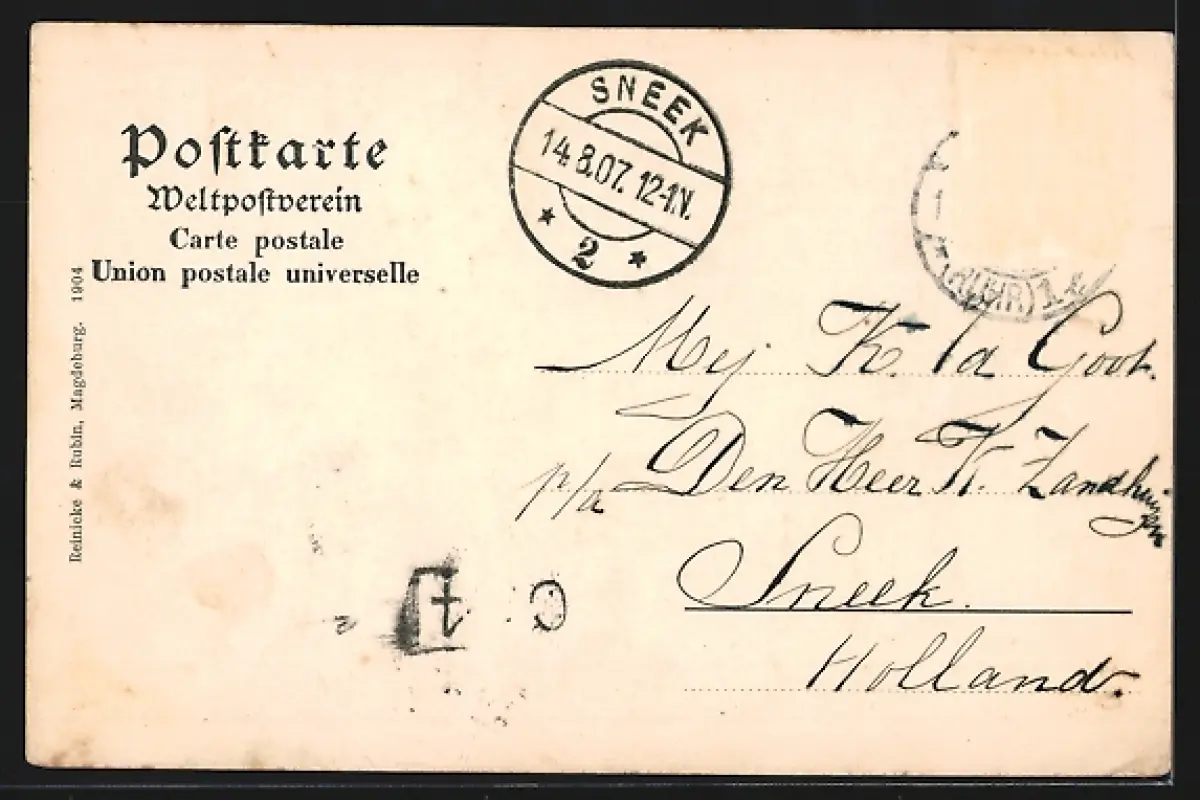 Postkarte
Weltpostverein
Carte postale
Union postale universelle
Reinicke & Rubin, Magdeburg. 1904
SNEEK
14.8.07. 12-1.N.
2
(RUHR) 1
Mej K. v d Goot.
p/a Den Heer K. Zandhuizen
Sneek.
Holland.